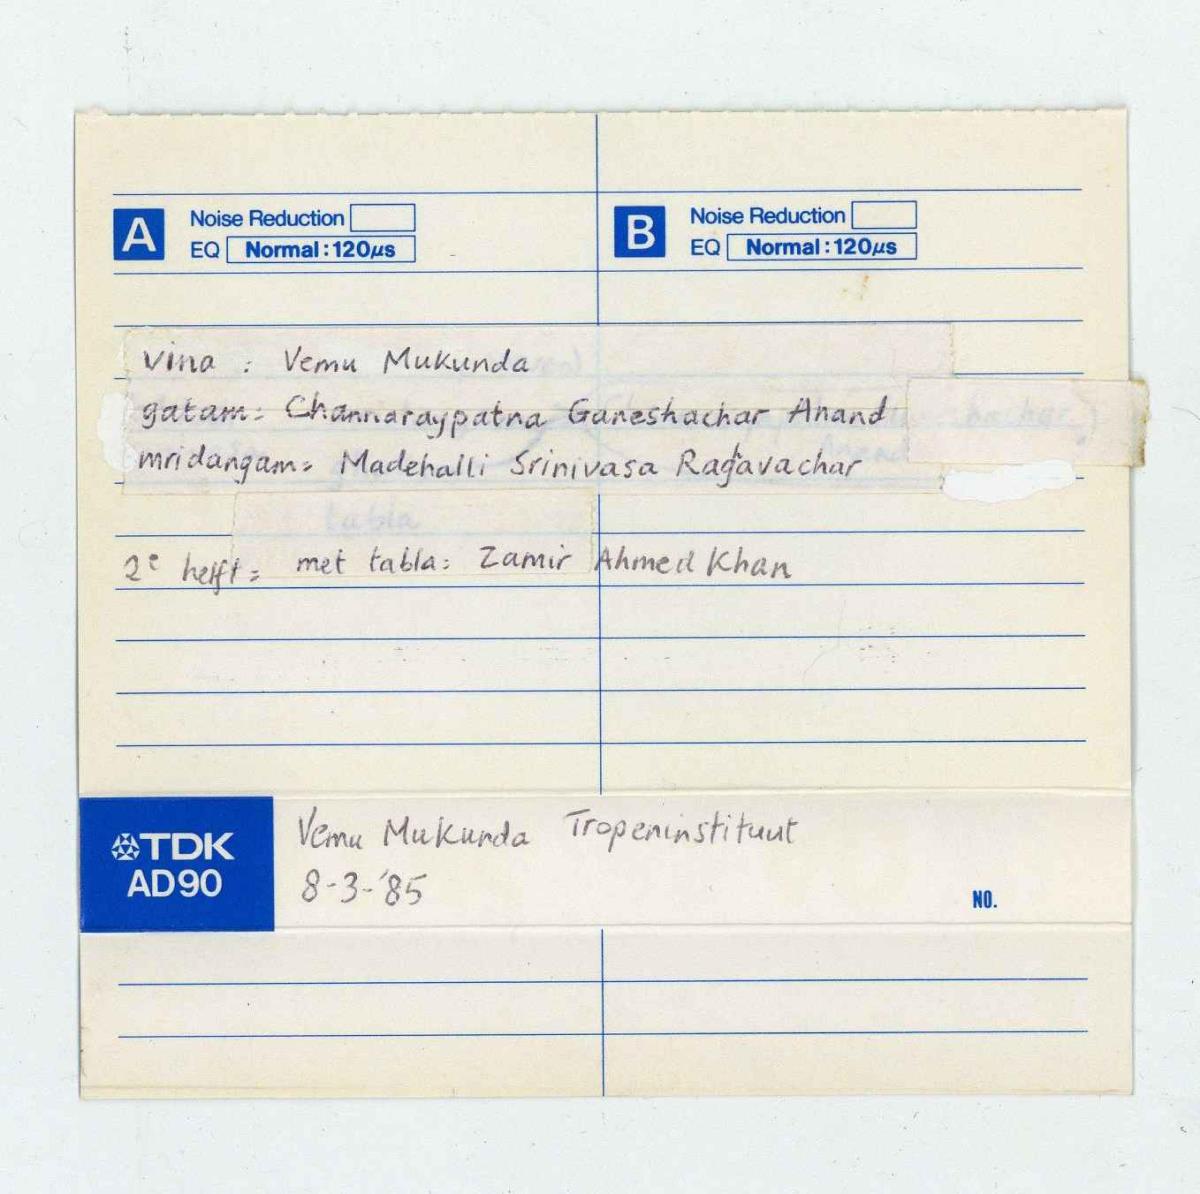 A Noise Reduction
EQ Normal:120µs
B Noise Reduction
EQ Normal:120µs
vina : Vemu Mukunda
gatam: Channaraypatna Ganeshachar Anand
mridangam: Madehalli Srinivasa Ragavachar
tabla
2e helft: met tabla: Zamir Ahmed Khan
TDK
AD90
Vemu Mukunda Tropeninstituut
8-3-'85
NO.